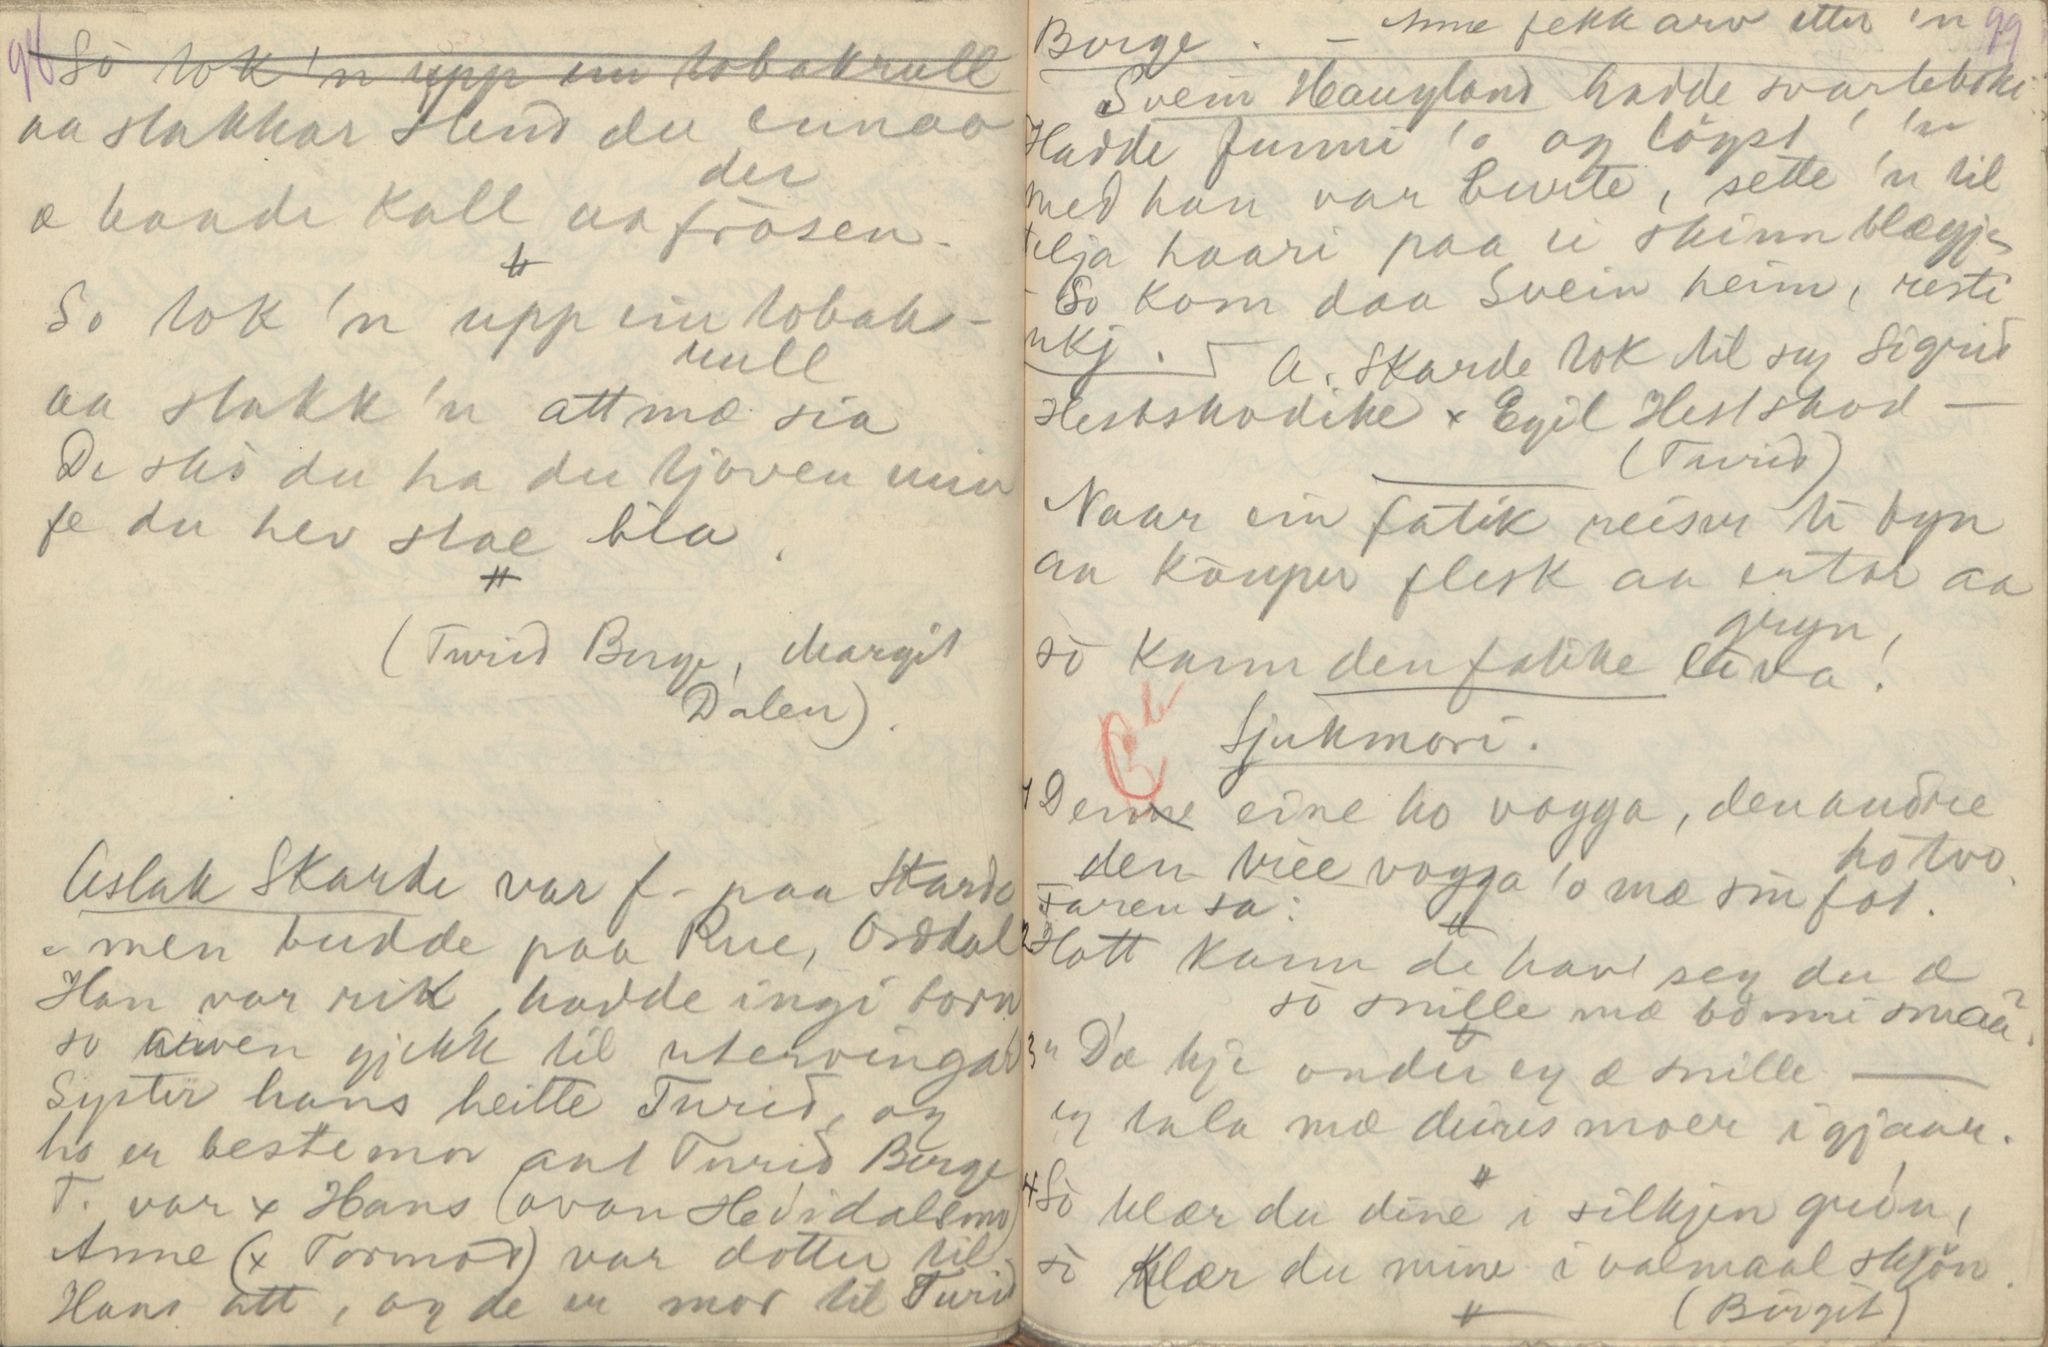 98
So tok 'n upp ein tobakrull
aa stakkar stend du einao
der
æ baade kall aa frosen.
So tok 'n upp ein tobak-
rull
aa stakk 'n attmæ sia
De sko du ha du tjoven min
fe du hev stæle bia.
(Turid Borge, Margit
Dalen).
Aslak Skarde var f. paa Skarde
men budde paa Rue, Orddal
Han var rik, hadde ingi born
so arven gjekk til utervingar
Syster hans heitte Turid, og
ho er bestemor aat Turid Borge
T. var x Hans (ovan Heividalsmo)
Anne (x Tormod) var dotter til
Hans att, og de er mor til Turid
Borge. – Anne fekk arv etter 'n
99
Svein Haugland hadde svarteboki
Hadde funni 'o og löyst 'n
med han var burte, sette 'n til
telja haari paa ei skinnblægje
So kom daa Svein heim, resti
ukj.
A. Skarde tok til seg Sigrid
Hestskodike x Egil Hestskod –
(Turid)
Naar ein fatik reiser ti byn
aa kauper flesk aa ertar aa
gryn,
so kann den fatike liva!
Bl
Sjukmori.
1 Denne eine ho vogga, den andre
ho tvo.
den trie vogga 'o mæ sin fot.
Faren sa:
2 Hott kann de have seg du æ
so snille mæ bonni smaa?
3 "Dæ kje onder eg æ snille —
eg tala mæ deires moer igjaar.
4 So klær du dine i silkjen grøn,
so klær du mine i valmaal skjøn.
(Birgit)